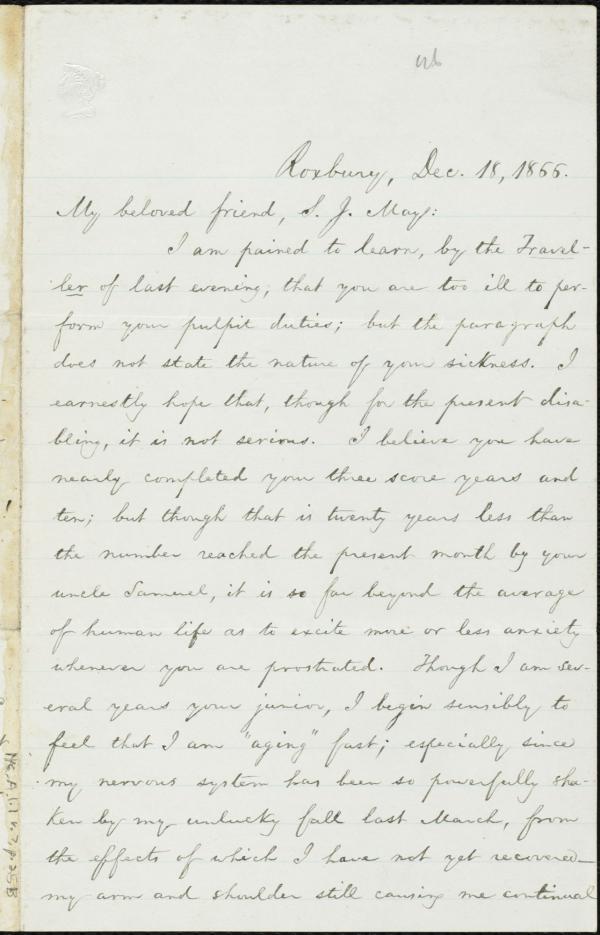 Roxbury, Dec. 18, 1866.
My beloved friend, S. J. May:
I am pained to learn, by the Travel-
ler of last evening, that you are too ill to per-
form your pulpit duties; but the paragraph
does not state the nature of your sickness. I
earnestly hope that, though for the present disa-
bling, it is not serious. I believe you have
nearly completed your three score years and
ten; but though that is twenty years less than
the number reached the present month by your
uncle Samuel, it is so far beyond the average
of human life as to excite more or less anxiety
whenever you are prostrated. Though I am sev-
eral years your junior, I begin sensibly to
feel that I am "aging" fast; especially since
my nervous system has been so powerfully sha-
ken by my unlucky fall last March, from
the effects of which I have not yet recovered—
my arm and shoulder still causing me continual
Ms.A.1.1 v.7, p.25B